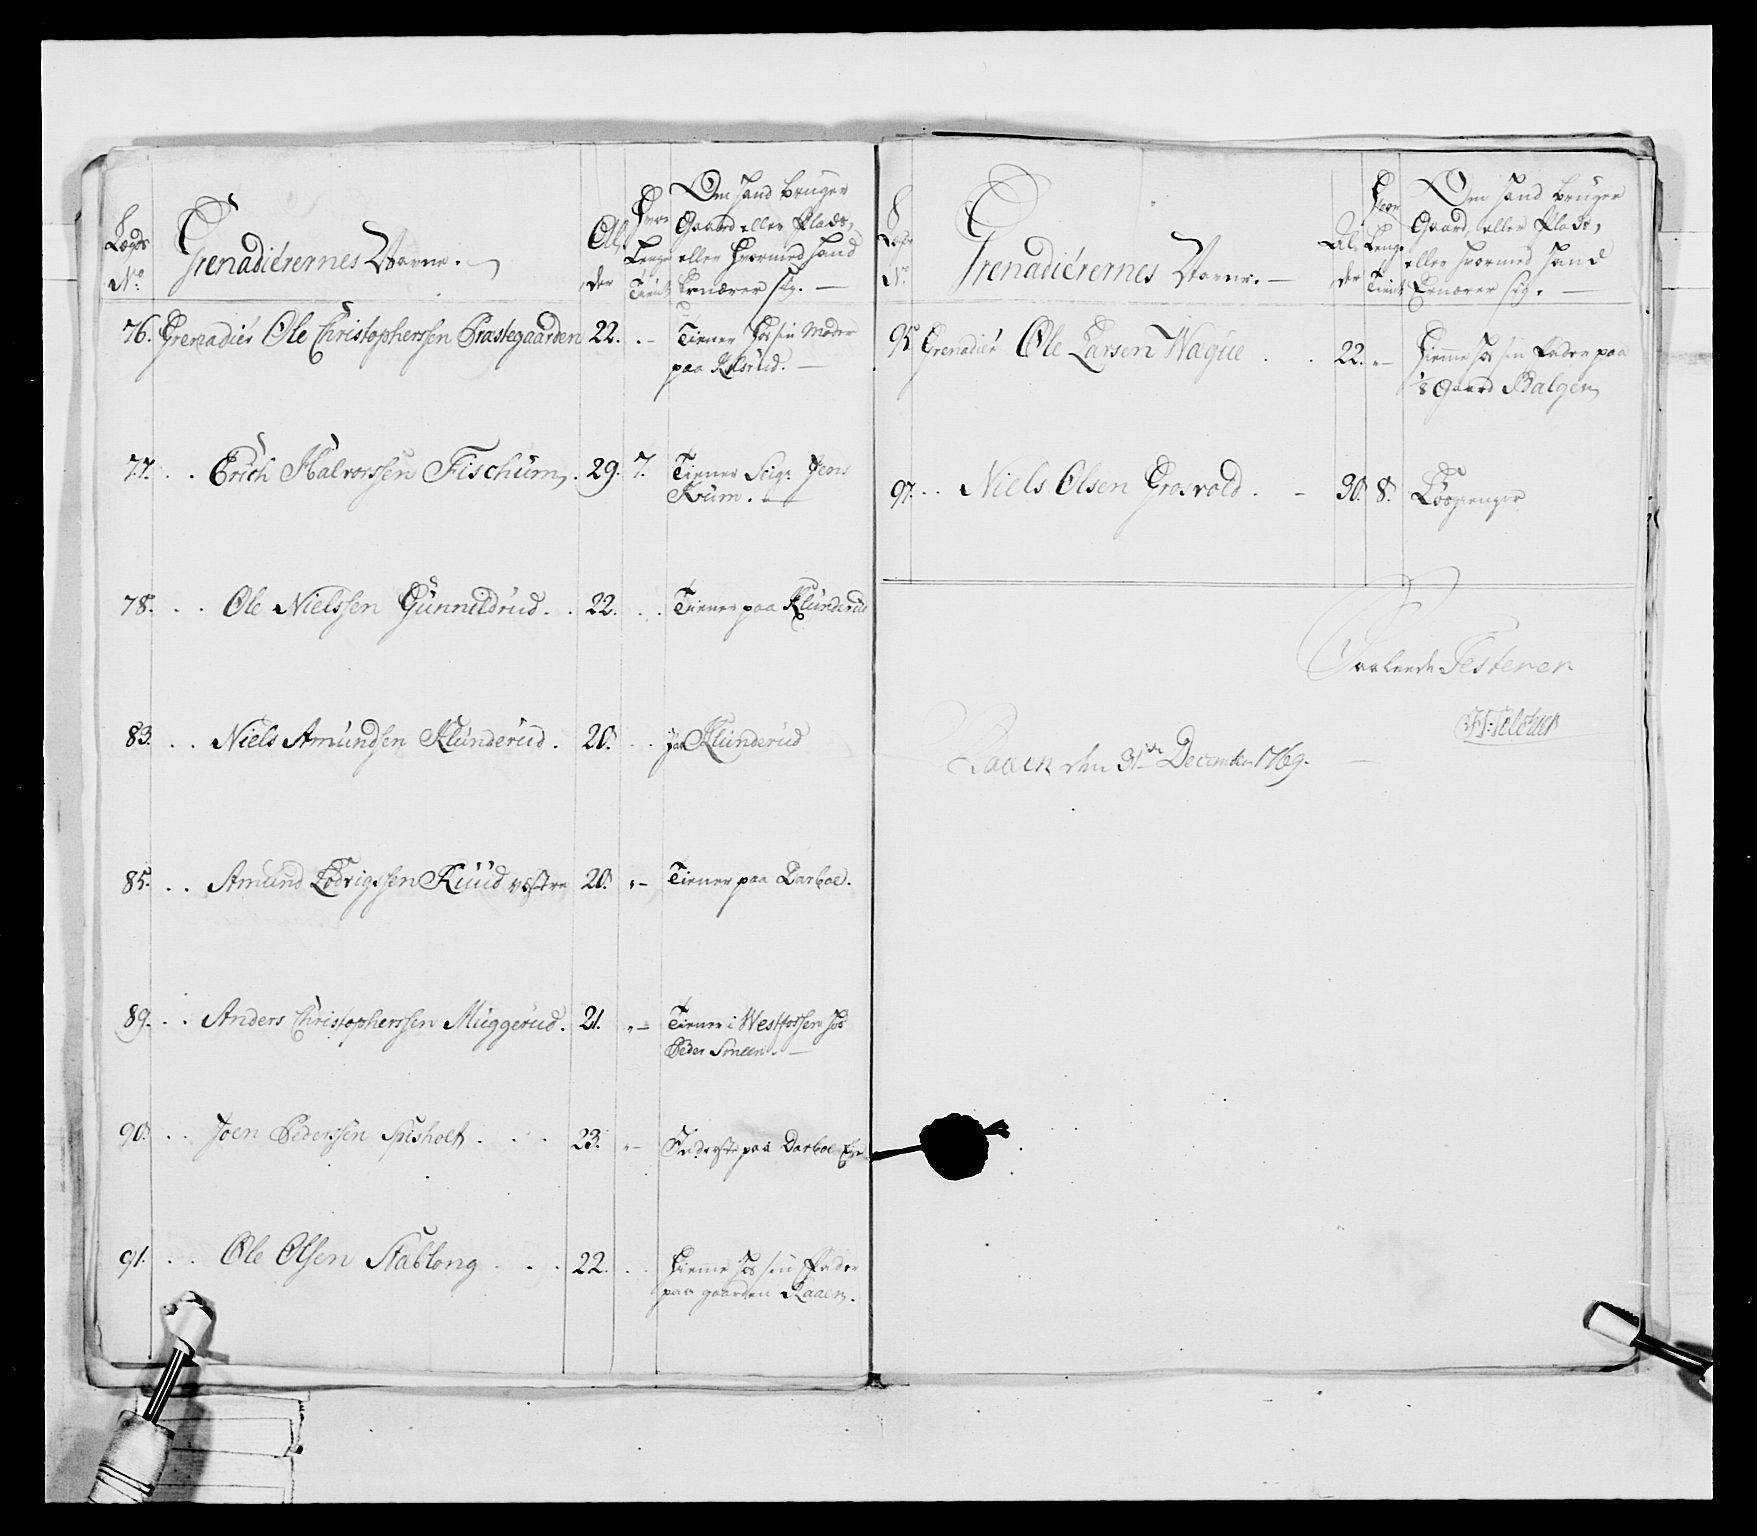 Lægds No
Grenadiérernes Navne.
Al, der
Hvor Lenge Tient
Om hand bruger
Gaard eller Plads,
eller hvormed hand
Ernærer sig.
76. Grenadiér Ole Christophersen Præstegaarden 22. Tiener hos sin Moder
paa
77. Erich Halvorssen Fischum. 29. 7. Tiener Seigr Jens
Krum.
78. Ole Nielssen Gunnildrud. 22. Tiener paa Klunderud
83. Niels Amundsen Klunderud. 20. paa Klunderud
85. Amund Lodvigssen Ruud vestre 20. Tiener paa Darboe.
89. Anders Christopherssen Muggerud. 21. Tiener i Westfossen hos
Peder Smeen.
90. Joen Pederssen Spisholt 23. Inderste paa Darboe Eje
91. Ole Olsen Stablong 22. Hiemme hos sin Fader
paa gaarden Raaen.
Lægds No
Grenadiérernes Navne.
Al, der
Hvor Lenge Tient
Om hand bruger
Gaard, eller Plads,
eller hvormed hand
Ernærer sig.
95. Grenadiér Ole Larsen Waque 22. Hiemme hos sin Fader paa
Gaard Balgen
97. Niels Olsen Grosvold. 30. 8. Løsgienger
Saaleedes Testerer
Raaen den 31te December 1769.